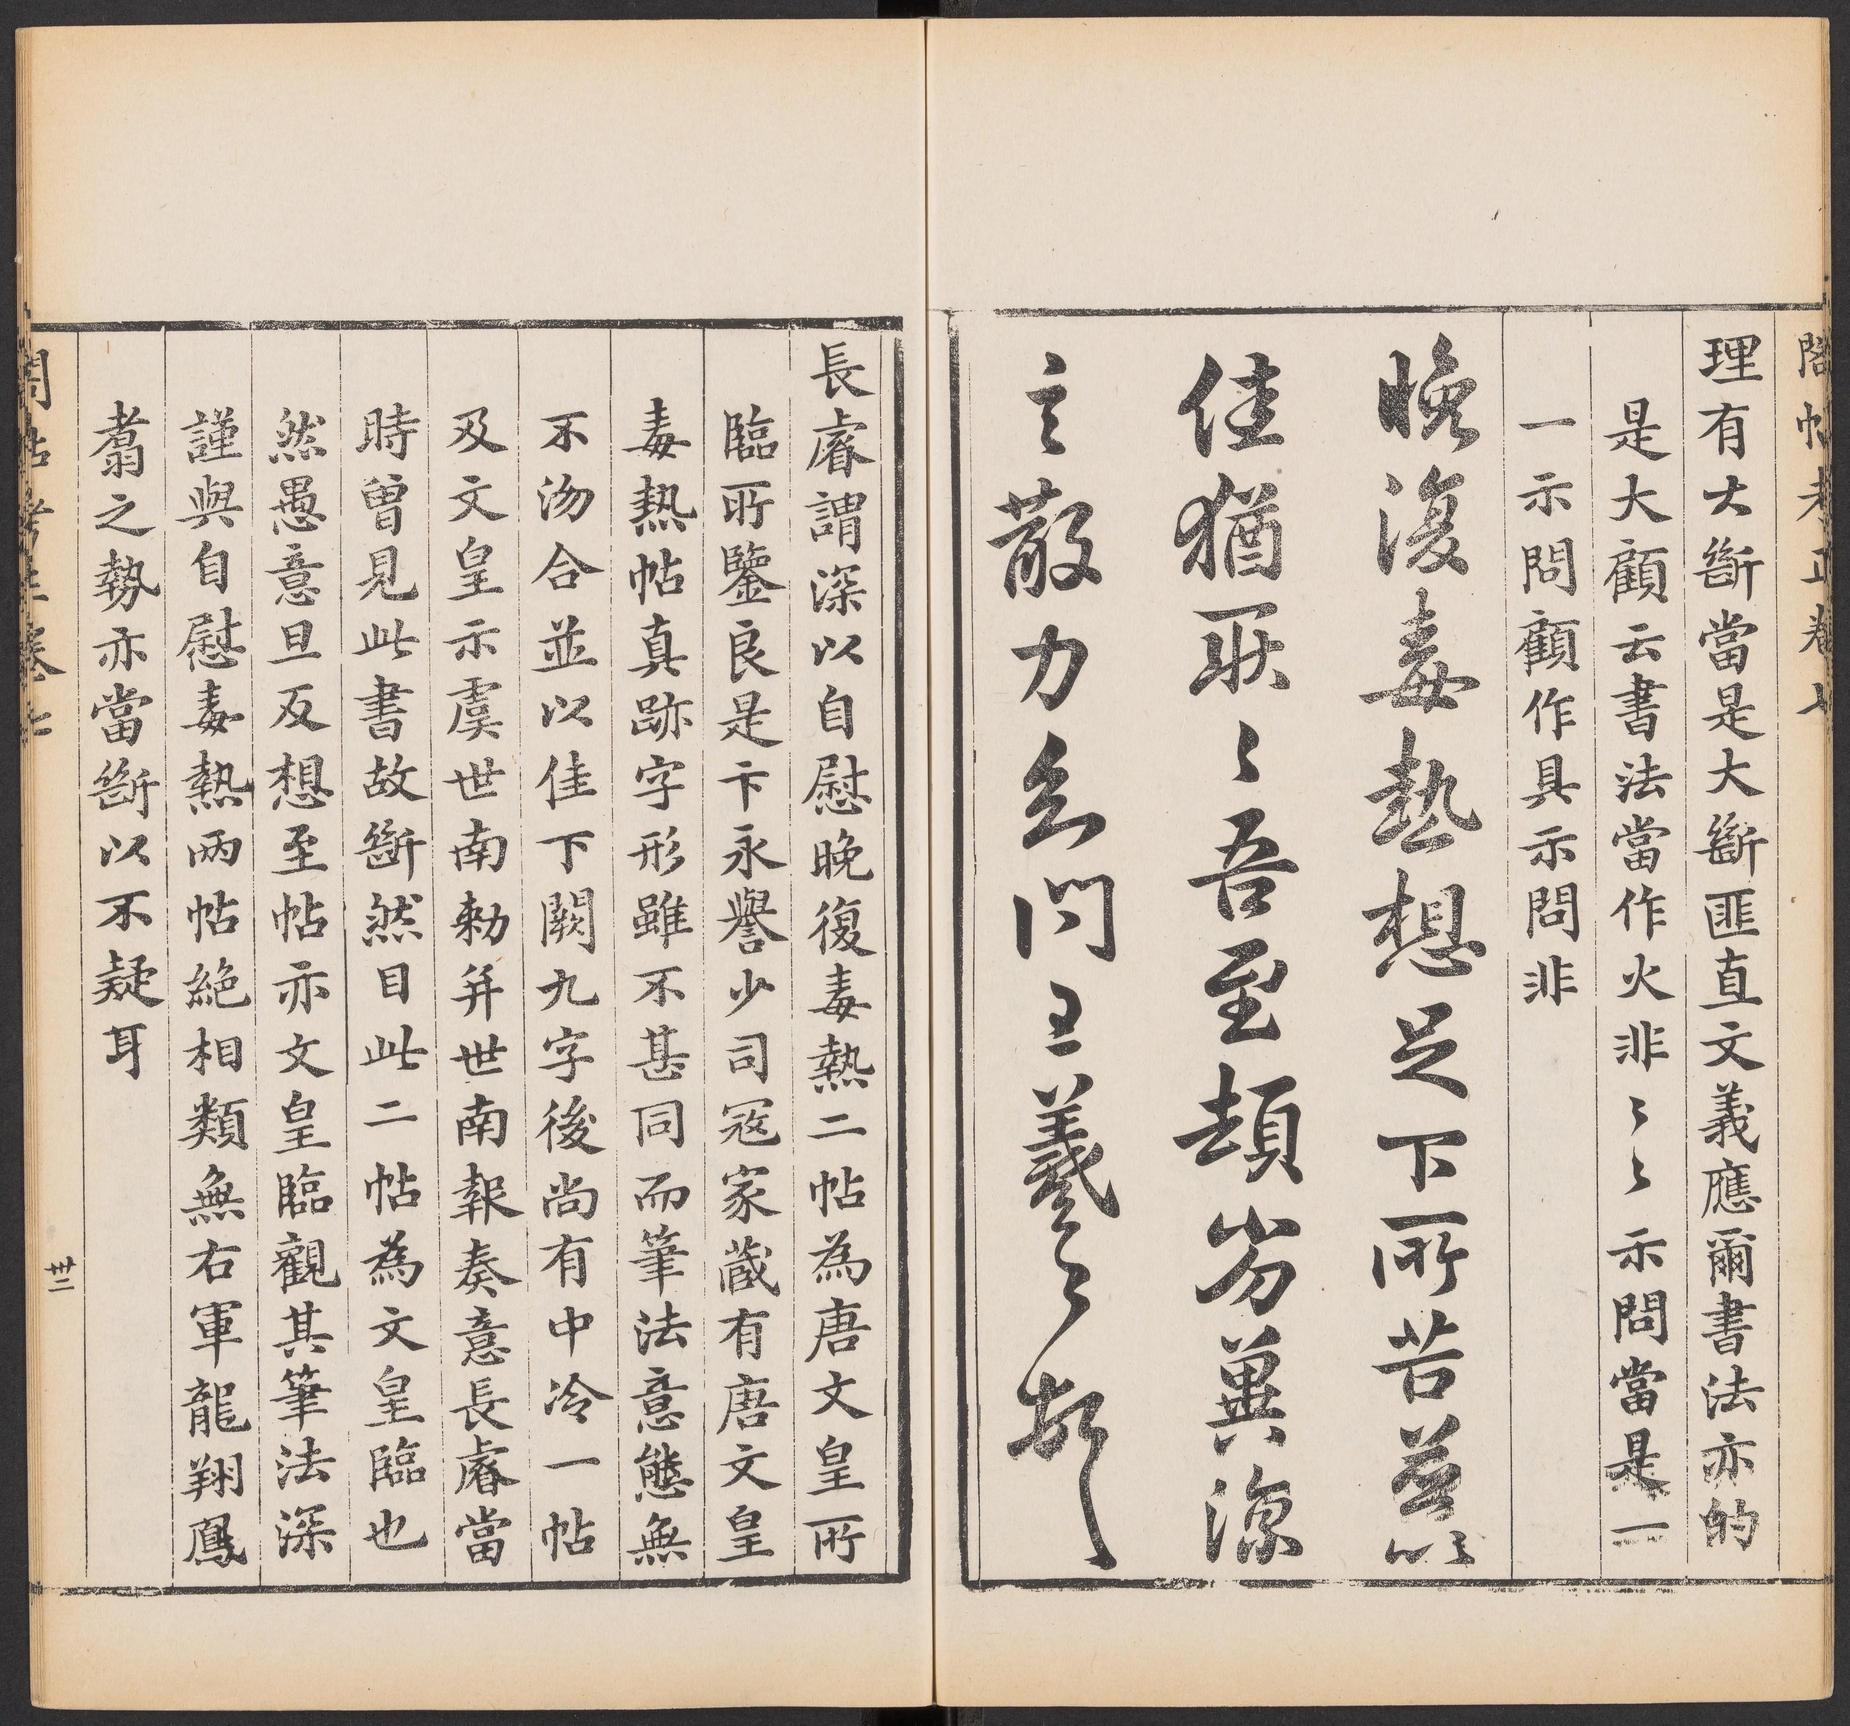 閣帖考正卷七
理有大斷當是大斷匪直文義應爾書法亦的
是大顧云書法當作火非〻〻示問當是一
一示問顧作具示問非
晚復毒熱想足下所苦並以
佳猶耿〻吾至頓劣冀涼
言散力知問王羲之頓
長睿謂深以自慰晚復毒熱二帖為唐文皇所
臨所鑒良是卞永譽少司冦家蔵有唐文皇
毒熱帖真跡字形雖不甚同而筆法意態無
不沕合並以佳下闕九字後尚有中冷一帖
及文皇示虞世南勑并世南報奏意長睿當
時曾見此書故斷然目此二帖為文皇臨也
然愚意旦反想至帖亦文皇臨觀其筆法深
謹與自慰毒熱兩帖絶相類無右軍龍翔鳳
翥之勢亦當斷以不疑耳
閣帖考正卷七
卅二